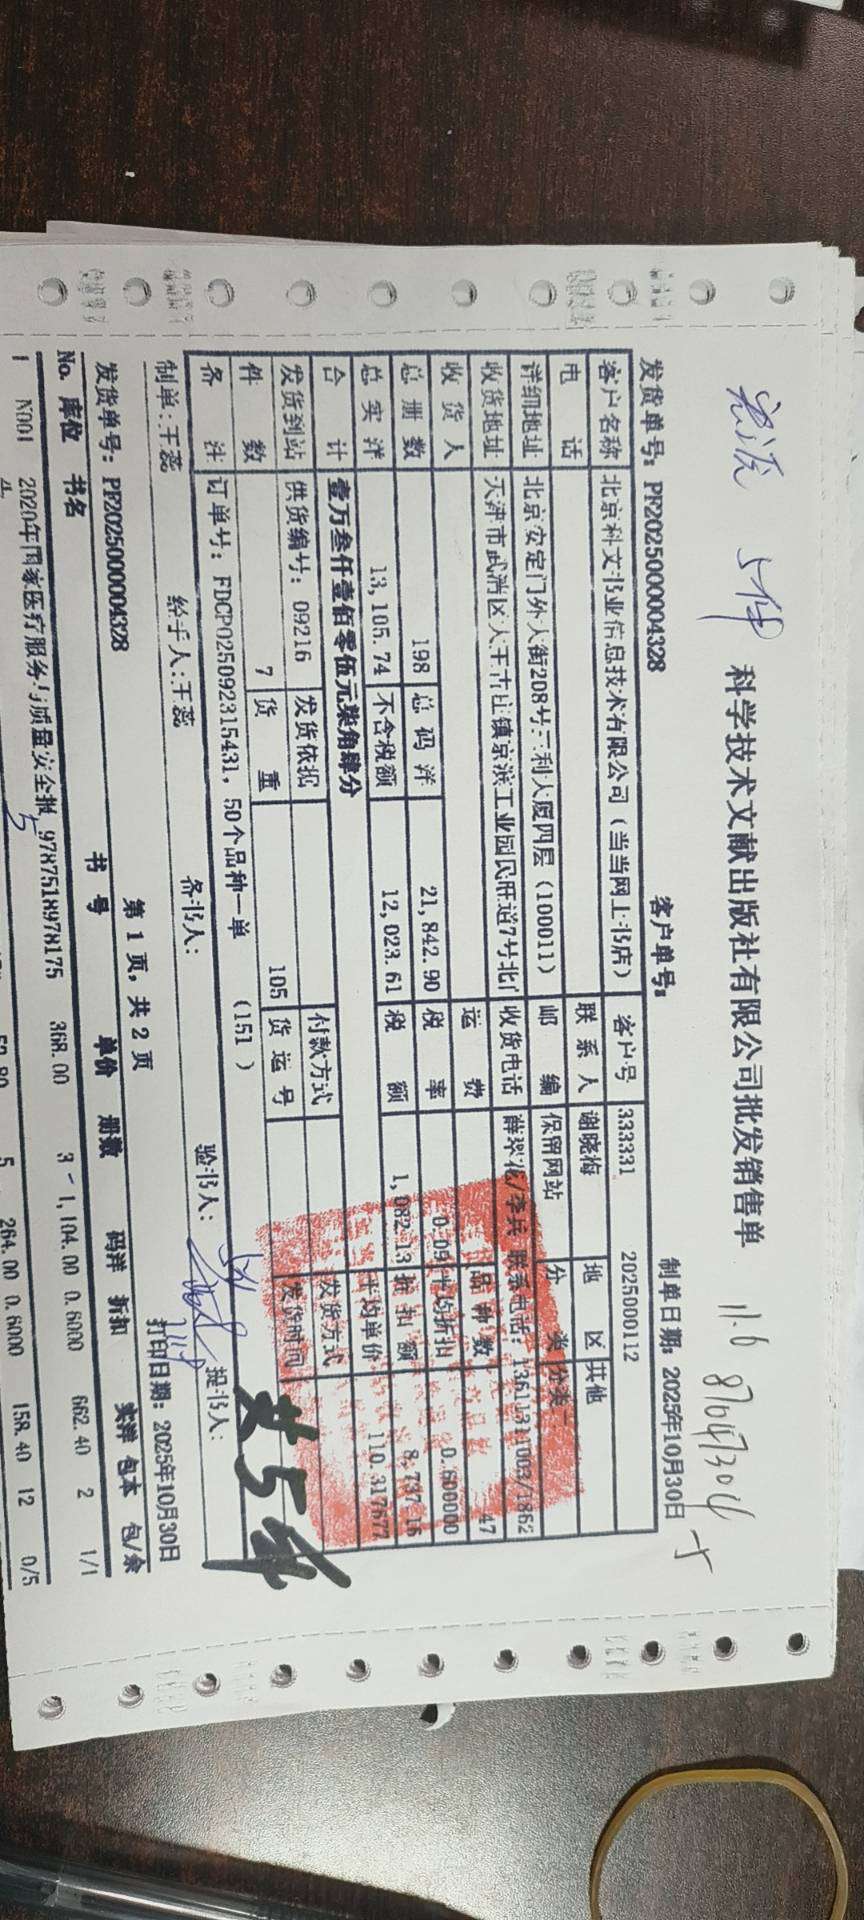 5件
11.6 87047304
科学技术文献出版社有限公司批发销售单
发货单号：PF2025000004328 客户单号： 制单日期：2025年10月30日
客户名称 北京科文书业信息技术有限公司（当当网上书店） 客户号 333331 2025000112
电 话 联系人 谢晓梅 地 区 其他
详细地址 北京安定门外大街208号三利大厦四层（100011） 邮 编 保留网站 分 类 分类二
收货地址 天津市武清区大王古庄镇京滨工业园民旺道7号北门 收货电话 薛翠花/李兵 联系电话：13611311003/1862
收 货 人 运 费 品 种 数 47
总 册 数 198 总 码 洋 21,842.90 税 率 0.09 平均折扣 0.600000
总 实 洋 13,105.74 不含税额 12,023.61 税 额 1,082.13 折 扣 额 8,737.16
合 计 壹万叁仟壹佰零伍元柒角肆分 平均单价 110.317677
发货到站 供货编号：09216 发货依据 付款方式 发货方式
件 数 7 货 重 105 货 运 号 发货时间
备 注 订单号：FDCP025092315431，50个品种一单 （151 ）
制单：王蕊 经手人：王蕊 备书人： 验书人： 提书人：
共5件
第 1 页，共 2 页 打印日期：2025年10月30日
发货单号：PF2025000004328
No. 库位 书名 书 号 单价 册数 码洋 折扣 实洋 包本 包/余
1 N001 2020年国家医疗服务与质量安全报 9787518978175 368.00 3 1,104.00 0.6000 662.40 2 1/1
5 264.00 0.6000 158.40 12 0/5